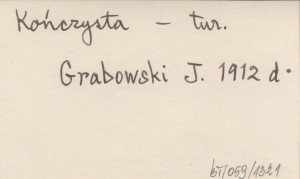 Kończysta – tur.
Grabowski J. 1912 d.
bT/059/1321